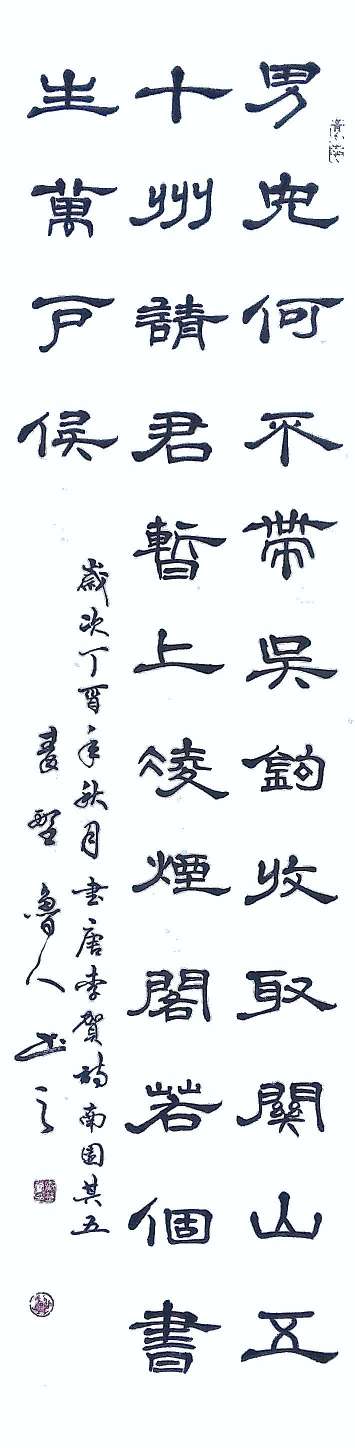 男兒何不帶吳鉤收取關山五
十州請君暫上凌煙閣若個書
生萬戶侯
歲次丁酉年秋月書唐李賀詩南園其五
魯人